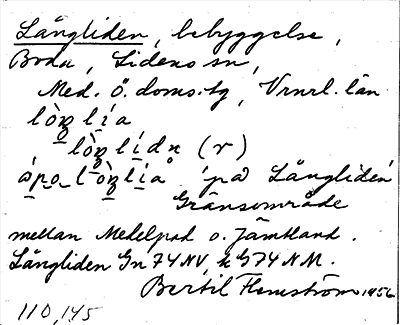 Långliden, bebyggelse,
Boda, Lidens sn,
Med. ö. doms.tg, Vrnrl. län
(r)
'på Långliden'
Gränsområde
mellan Medelpad o. Jämtland.
Långliden Gn 74 NV, k G 74 NM.
Bertil Flemström 1956
110,145